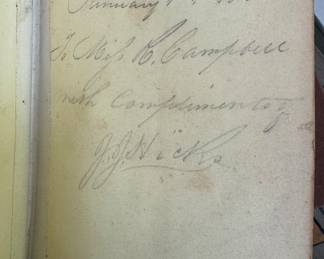 January
To Miss R. Campbell
with compliments of
J. J. Hicks